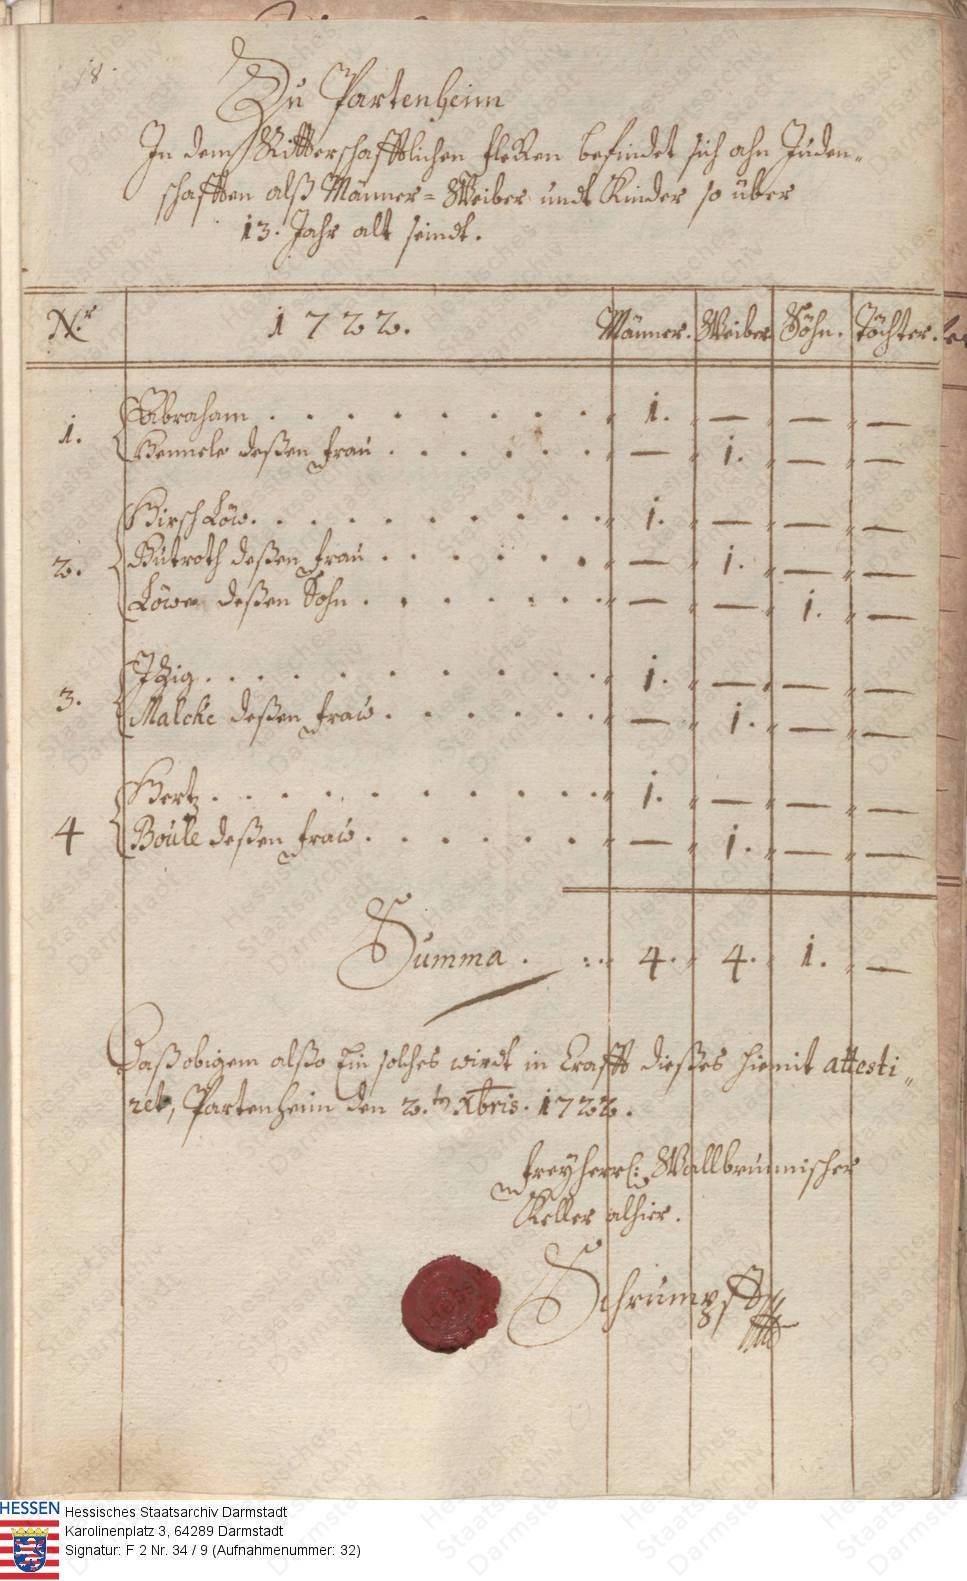 18.
Zu Partenheim
In dem Ritterschafftlichen fleken befindet sich ahn Juden-
schafften alß Männer- Weiber undt Kinder so über
13. Jahr alt seindt.
Nr. 1722. Männer. Weiber Söhn. Töchter.
1. Abraham . . . . . . . . 1. — — —
Hennele deßen frau . . . . . . — 1. — —
Hirsch Löw. . . . . . . . . 1. — — —
2. Gutroth deßen frau . . . . . . — 1. — —
Löwe deßen Sohn . . . . . . — — 1. —
Itzig . . . . . . . . . 1. — — —
3. Malcke deßen fraw . . . . . . — 1. — —
Hertz . . . . . . . . . 1. — — —
4 Boule deßen fraw . . . . . . — 1. — —
Summa . . . . 4. 4. 1. —
Daß obigem alßo Ein solches wirdt in Crafft dießes hiemit attesti-
ret, Partenheim den 2.ten Xbris. 1722.
freyherrl: Wallbrunnischer
Keller alhier.
Schrumpff
HESSEN
Hessisches Staatsarchiv Darmstadt
Karolinenplatz 3, 64289 Darmstadt
Signatur: F 2 Nr. 34 / 9 (Aufnahmenummer: 32)